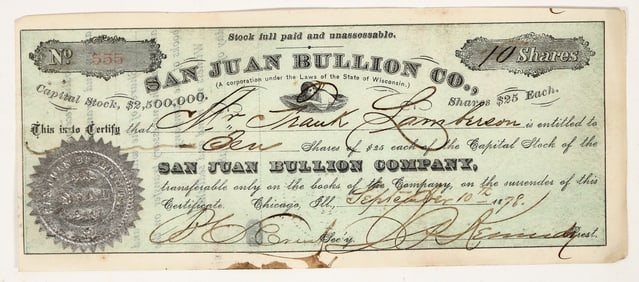 Stock full paid and unassessable.
No 555
10 Shares
SAN JUAN BULLION CO.,
(A corporation under the Laws of the State of Wisconsin.)
Capital Stock, $2,500,000.
Shares $25 Each.
This is to Certify that Mr Frank Lamberson is entitled to
Ten Shares of $25 each of the Capital Stock of the
SAN JUAN BULLION COMPANY,
transferable only on the books of the Company, on the surrender of this
Certificate. Chicago, Ill., September 10th 1878.
Sec'y.
Prest.